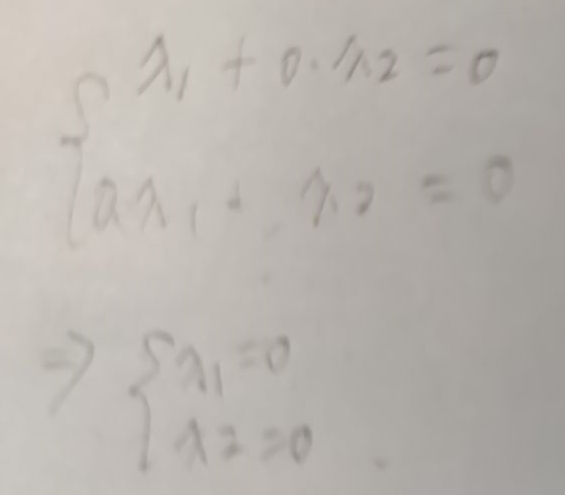 { λ₁ + 0·λ₂ = 0
aλ₁ + λ₂ = 0
⇒ { λ₁ = 0
λ₂ = 0 .